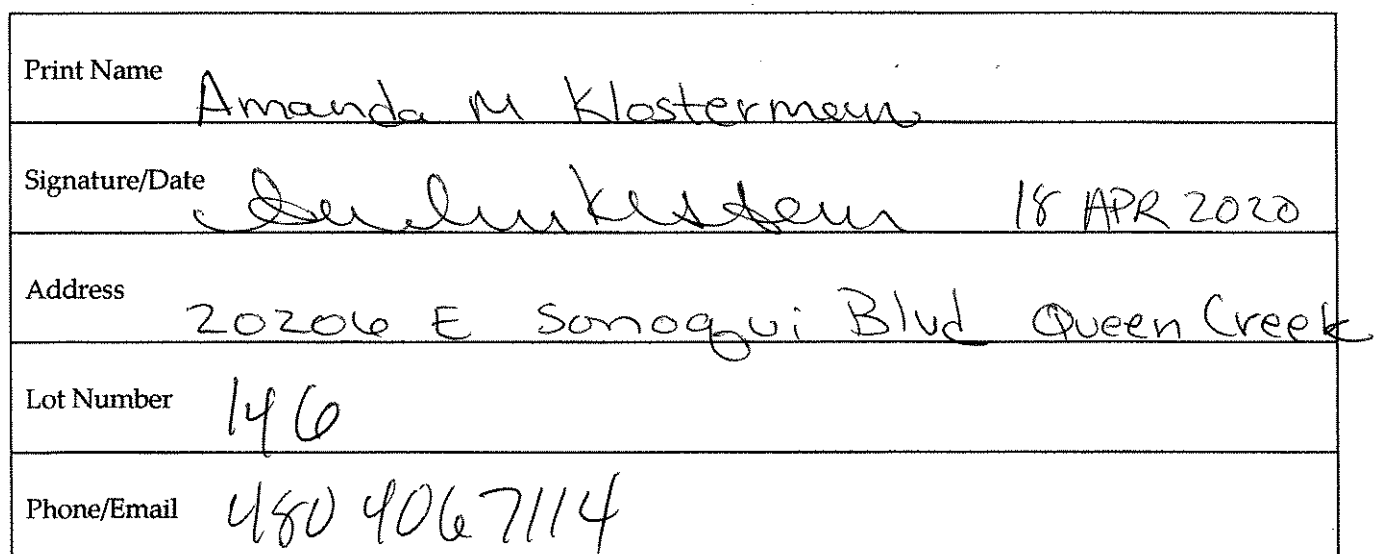 Print Name Amanda M Klosterman
Signature/Date 18 APR 2020
Address 20206 E Sonoqui Blvd Queen Creek
Lot Number 146
Phone/Email 480 406 7114